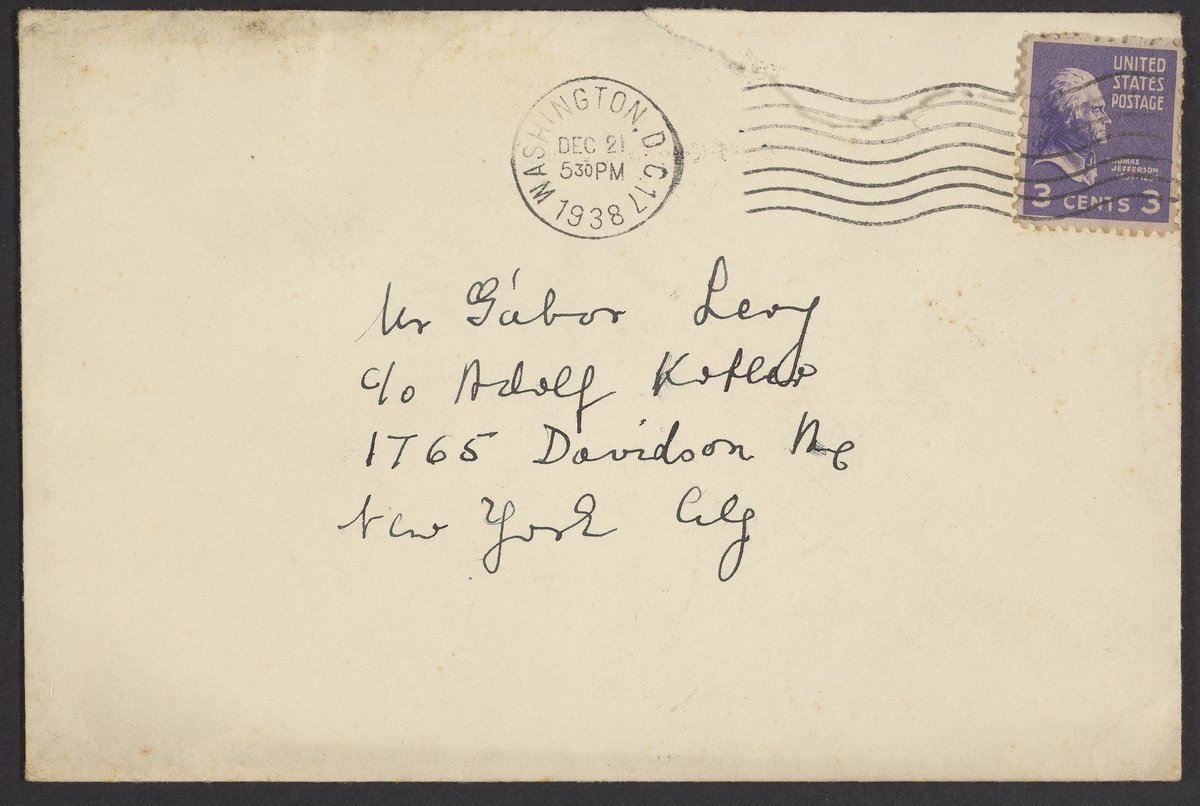 WASHINGTON, D.C. 17
DEC 21
530PM
1938
UNITED
STATES
POSTAGE
THOMAS
JEFFERSON
3 CENTS 3
Mr Gábor Levy
c/o Adolf Kotler
1765 Davidson Ave
New York City